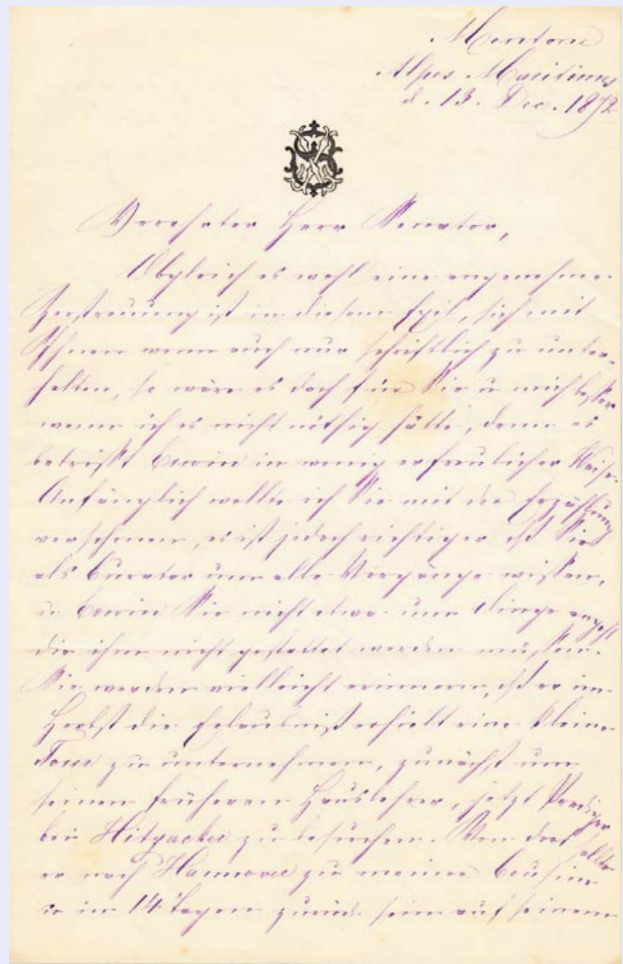 Mentone
Alpes Maritimes
d. 13. Dec. 1872
Verehrter Herr Senator,
Obgleich es wohl eine angenehme
Zerstreuung ist in diesem Exil, sich mit
Ihnen wenn auch nur schriftlich zu unter-
halten, so wäre es doch für Sie u mich besser
wenn ich es nicht nöthig hätte, denn es
betrifft Erwin in wenig erfreulicher Weise.
Anfänglich wollte ich Sie mit der Erzählung
verschonen, es ist jedoch richtiger daß Sie
als Curator um alle Vorgänge wissen,
u Erwin Sie nicht etwa um Dinge angeht
die ihm nicht gestattet werden müssen.
Sie werden vielleicht erinnern, daß er im
Herbst die Erlaubniß erhielt eine kleine
Tour zu unternehmen, zunächst um
seinen früheren Hauslehrer, jetzt Prediger
bei Hitzacker zu besuchen. Von dort sollte
er nach Hannover zu meiner Cousine
u in 14 Tagen zurück sein auf seinem